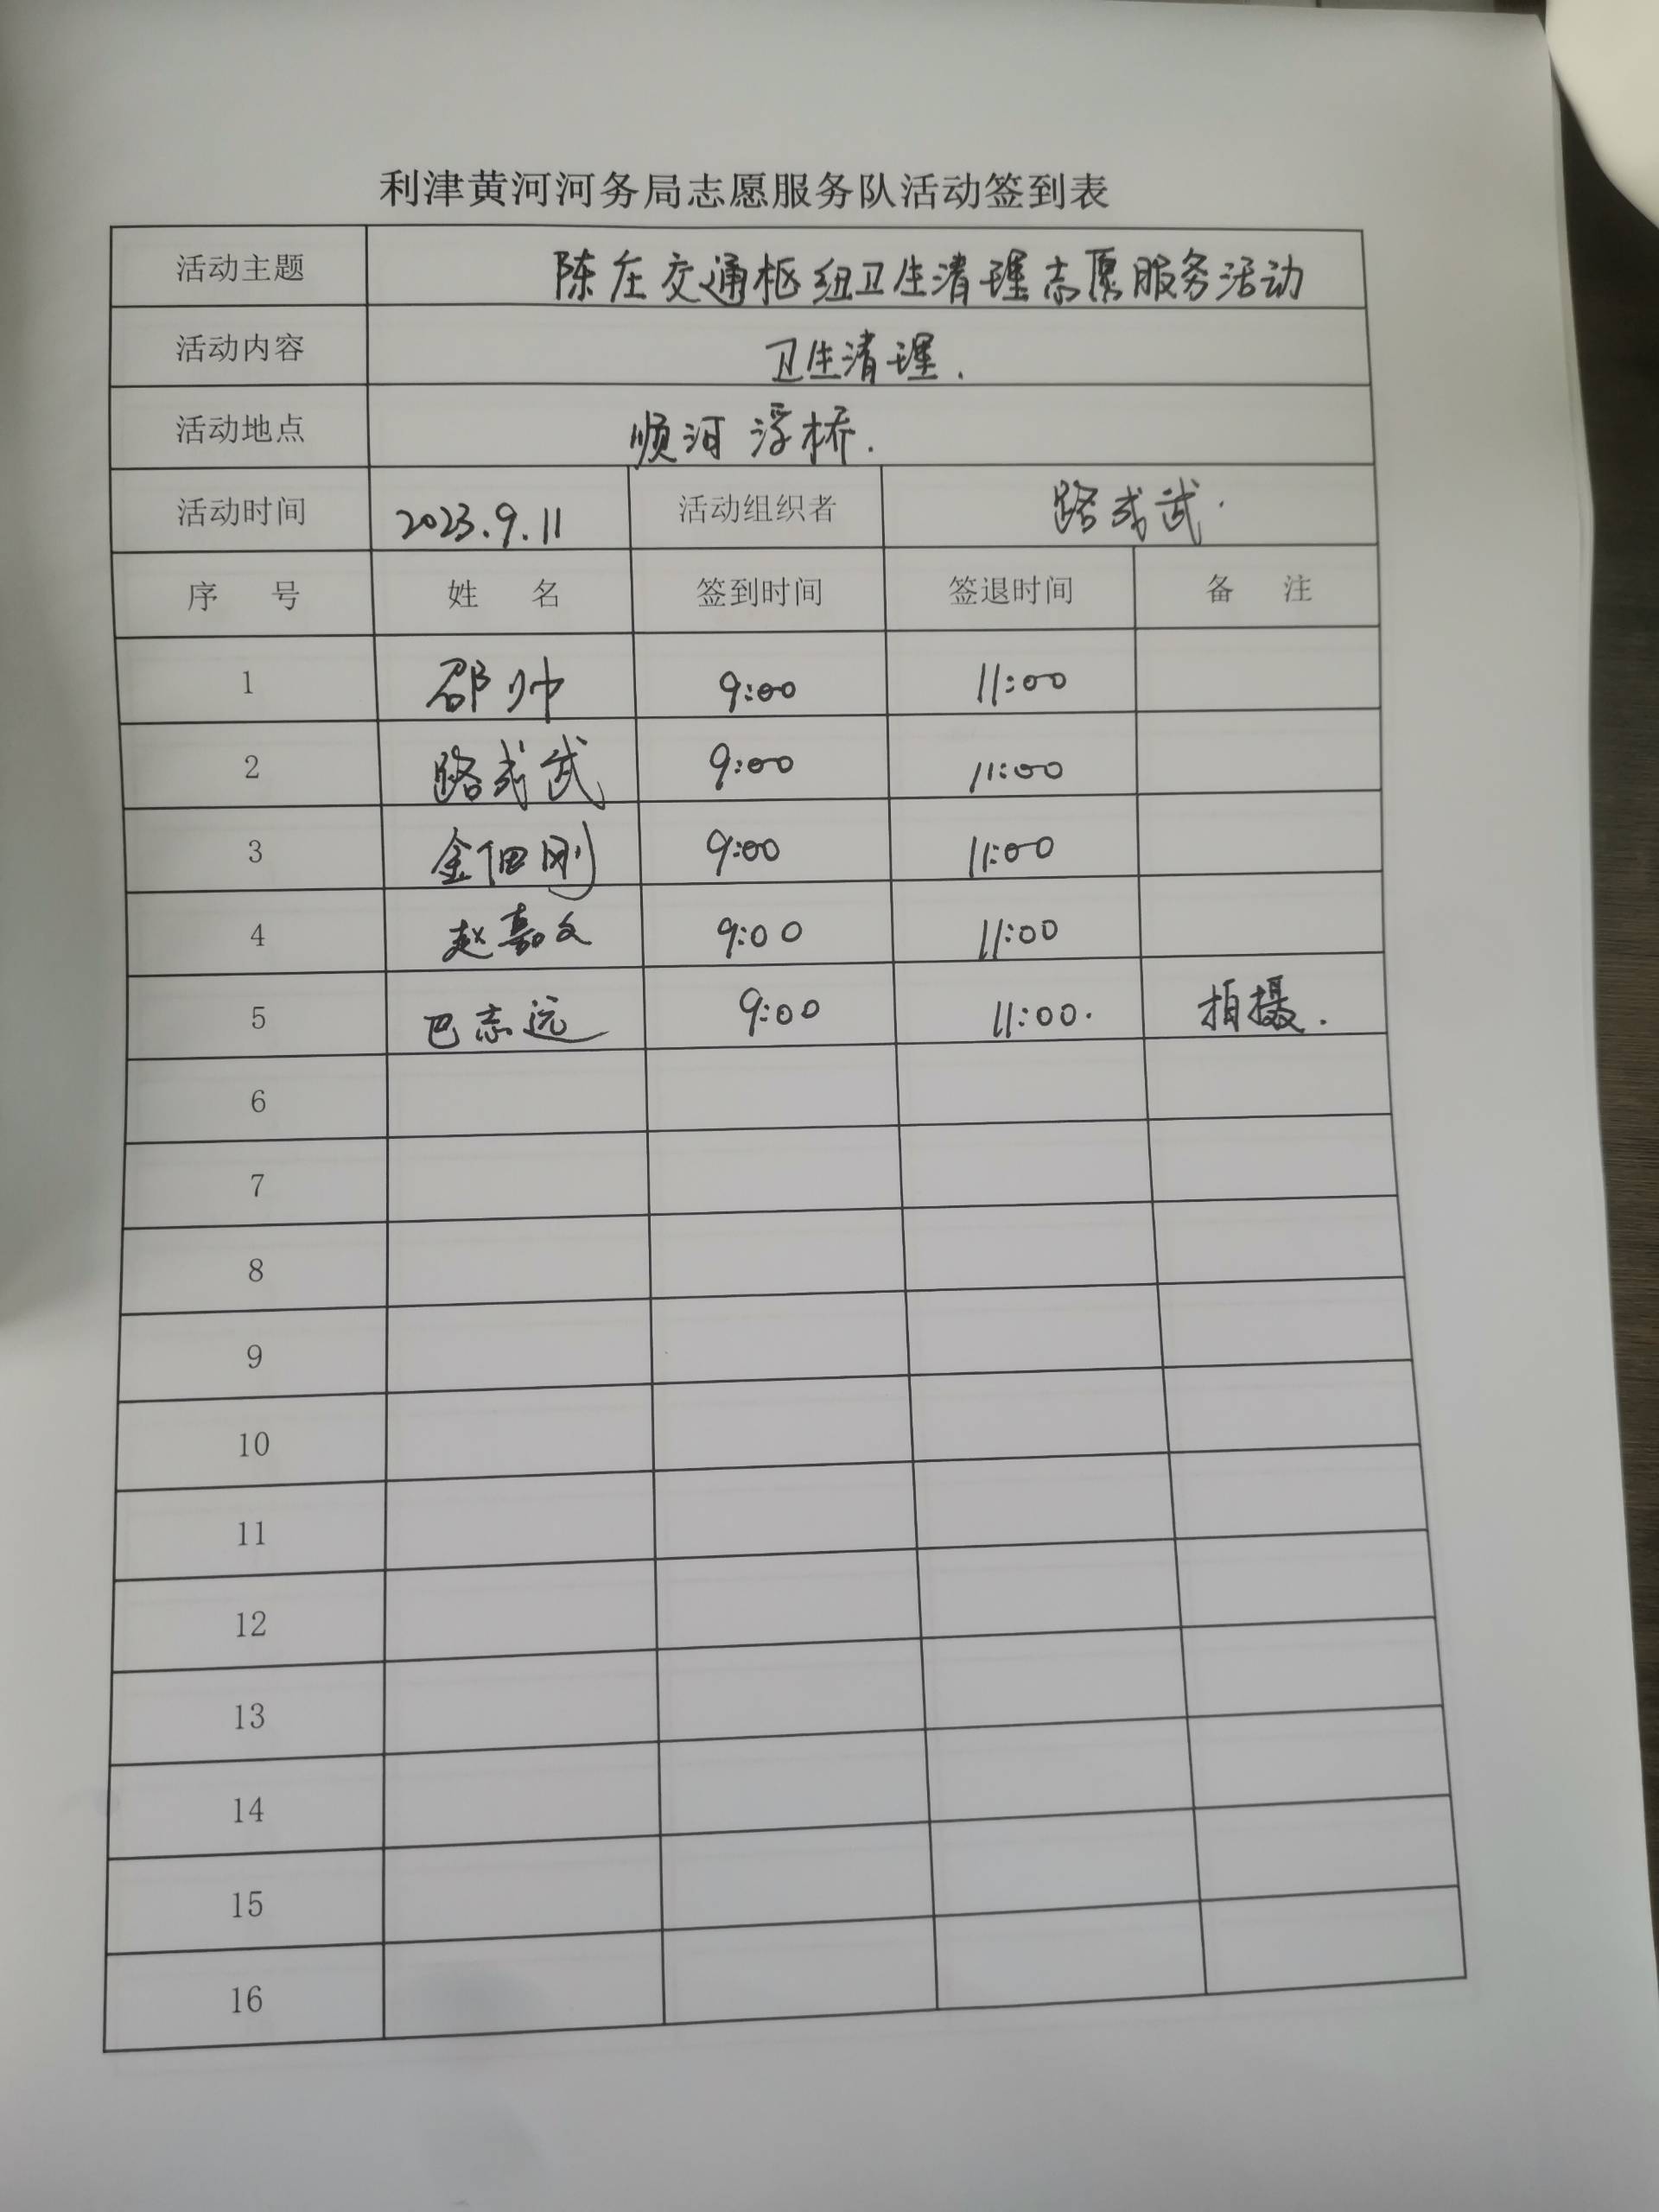 利津黄河河务局志愿服务队活动签到表
活动主题 陈庄交通枢纽卫生清理志愿服务活动
活动内容 卫生清理.
活动地点 顺河浮桥.
活动时间 2023.9.11 活动组织者 路成武.
序 号 姓 名 签到时间 签退时间 备 注
1 邵帅 9:00 11:00
2 路成武 9:00 11:00
3 金佃刚 9:00 11:00
4 赵嘉文 9:00 11:00
5 巴志远 9:00 11:00. 拍摄.
6
7
8
9
10
11
12
13
14
15
16